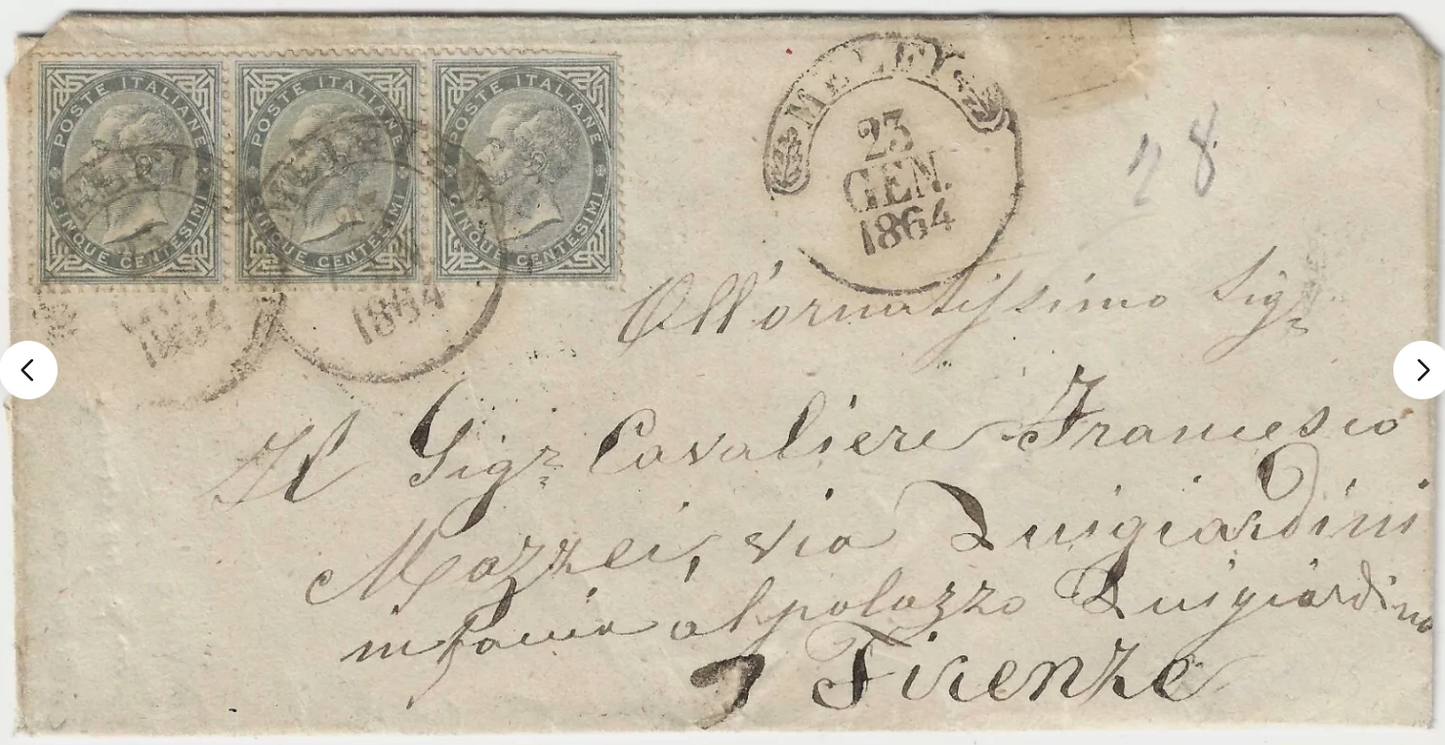 POSTE ITALIANE
CINQUE CENTESIMI
POSTE ITALIANE
CINQUE CENTESIMI
POSTE ITALIANE
CINQUE CENTESIMI
1864
1864
23
GEN.
1864
28
All'ornatissimo Sigr
Il Sigr Cavaliere Francesco
Mazzei, via
in faccia al palazzo
Firenze